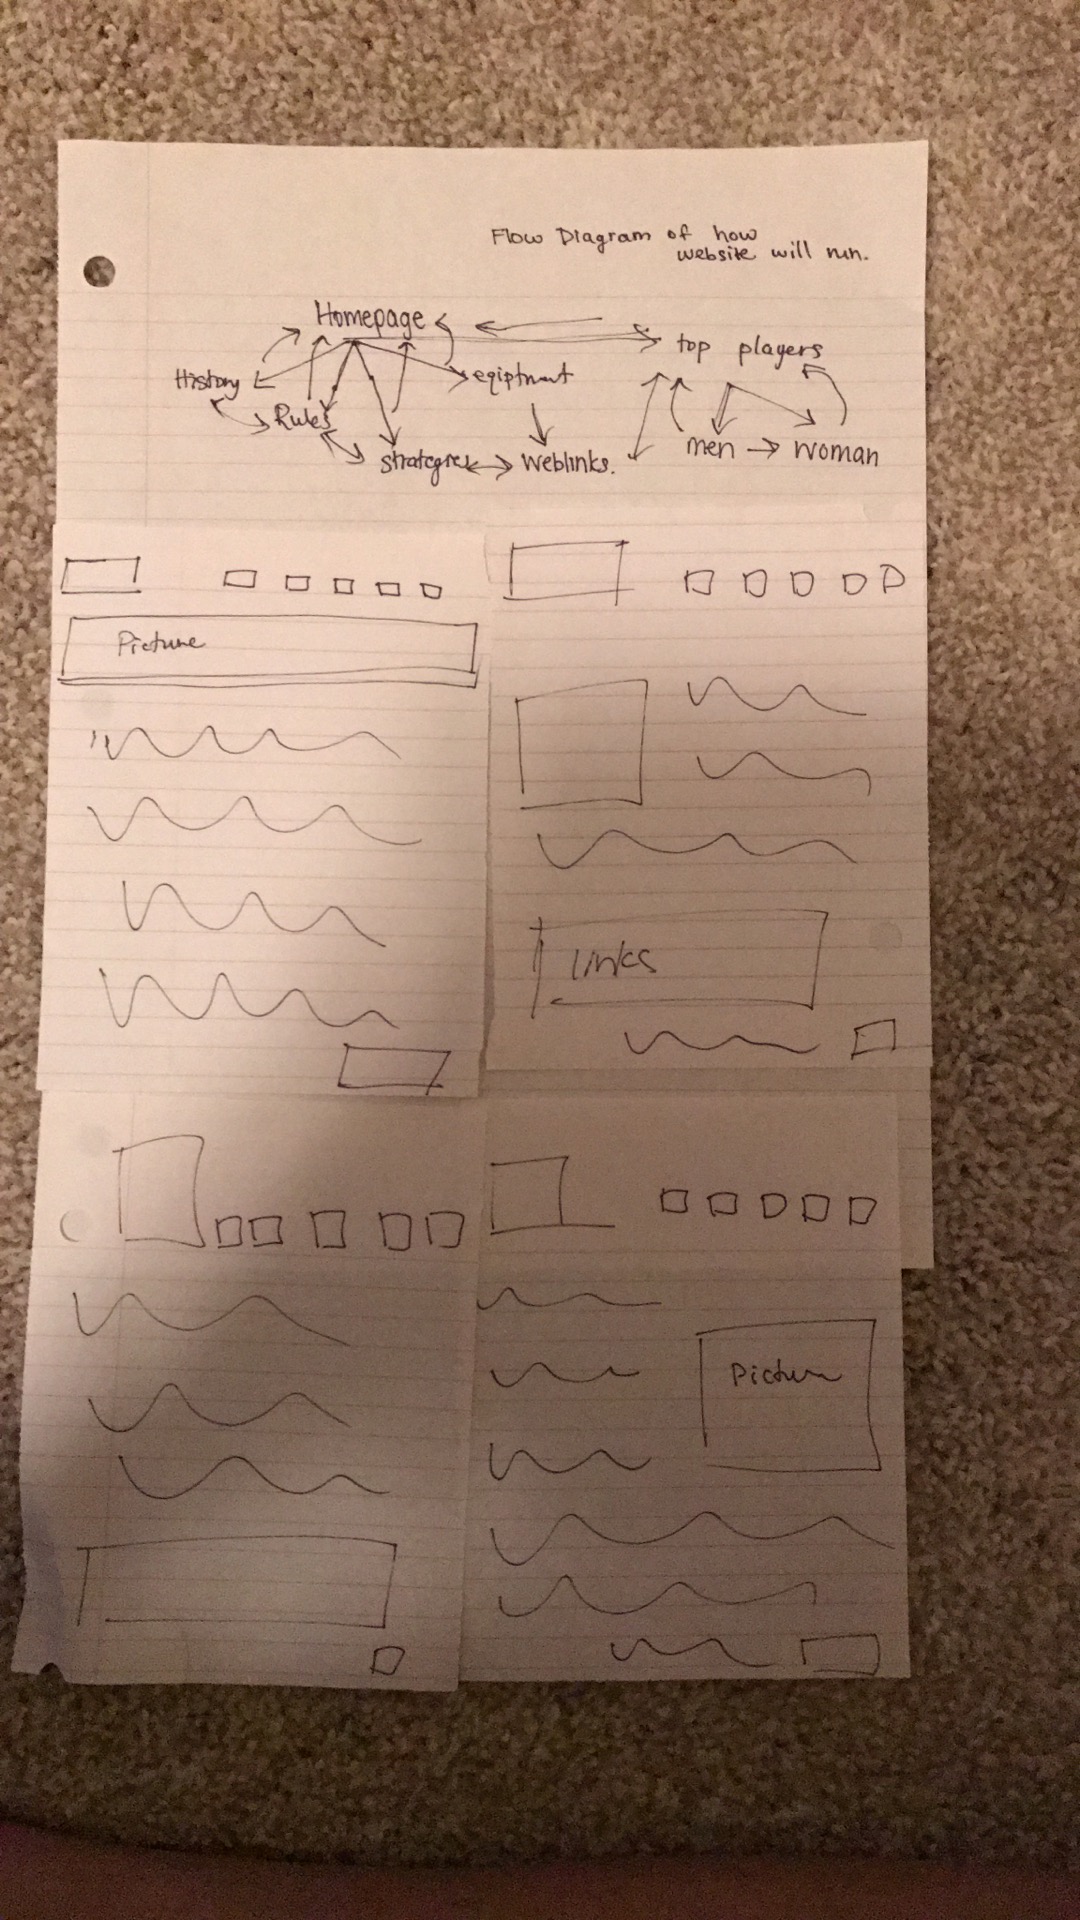 Flow Diagram of how
website will run.
Homepage
top players
History
eqiptment
Rules
men
woman
strategies
weblinks.
Picture
links
Picture